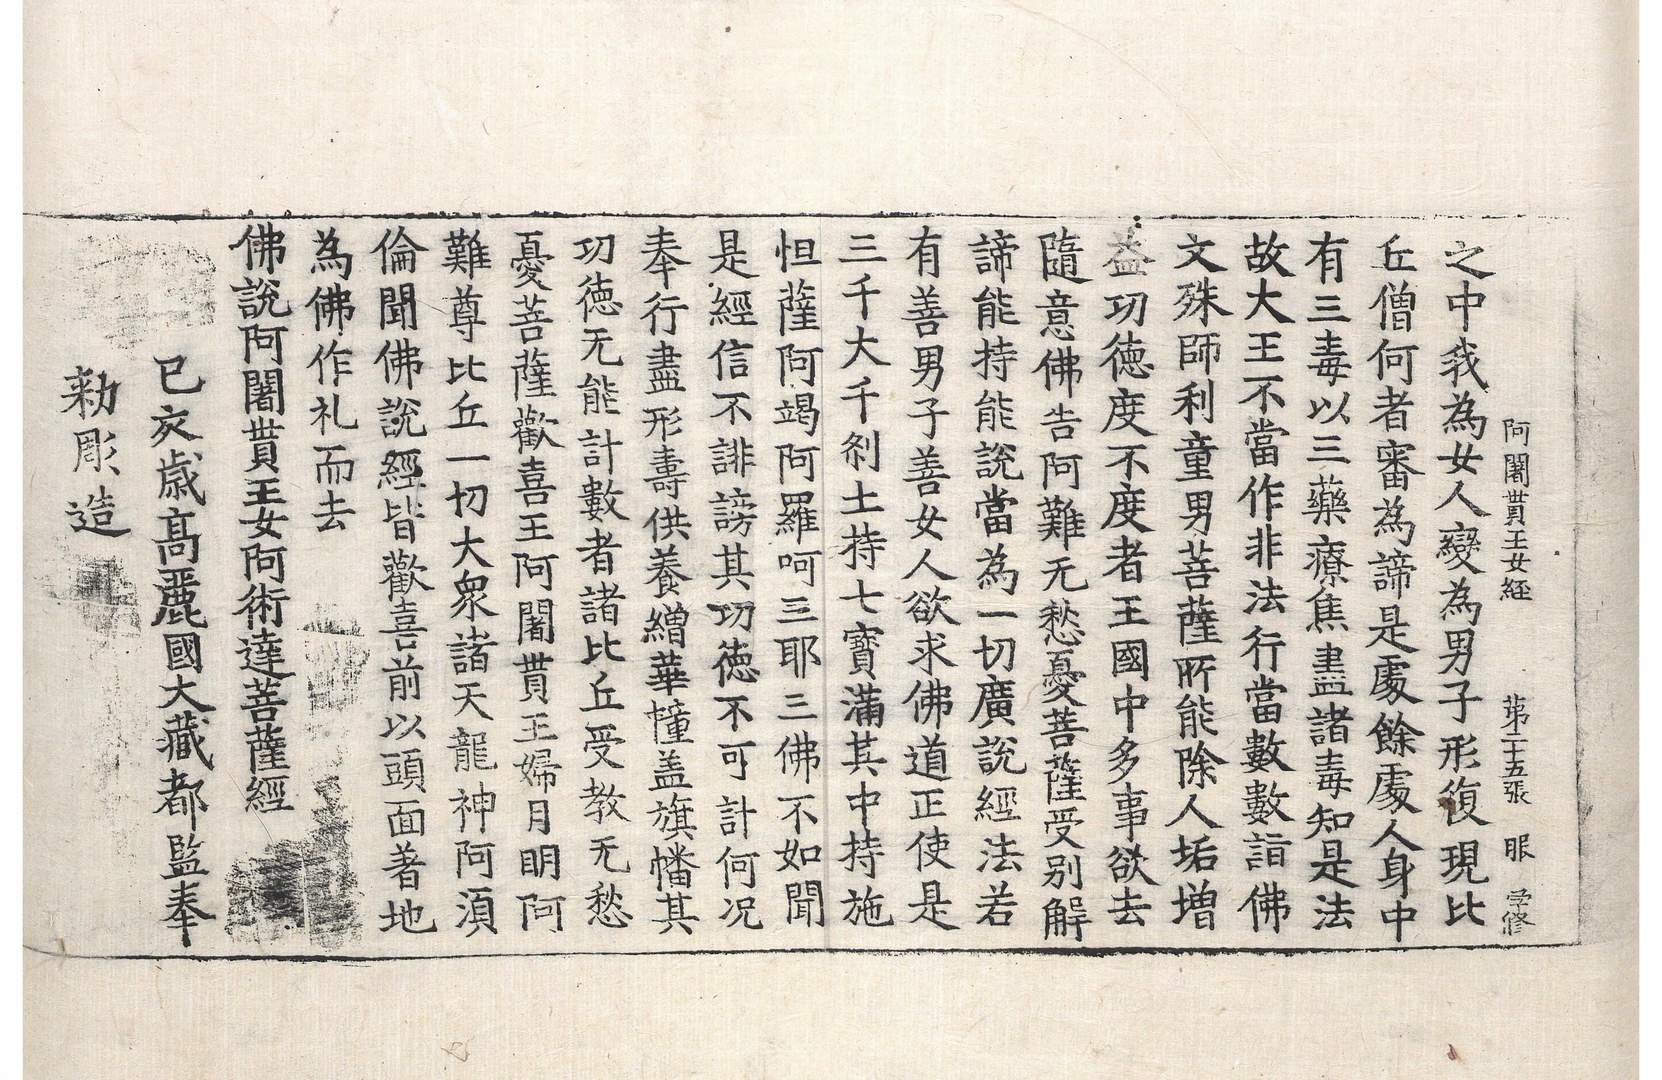 阿闍貰王女經 第二十五張 服 学修
之中我為女人變為男子形復現比
丘僧何者審為諦是處餘處人身中
有三毒以三藥療焦盡諸毒知是法
故大王不當作非法行當數數詣佛
文殊師利童男菩薩所能除人垢增
益功德度不度者王國中多事欲去
隨意佛告阿難无愁憂菩薩受别解
諦能持能說當為一切廣說經法若
有善男子善女人欲求佛道正使是
三千大千刹土持七寶滿其中持施
怛薩阿竭阿羅呵三耶三佛不如聞
是經信不誹謗其功德不可計何况
奉行盡形壽供養繒華幢盖旗幡其
功徳无能計數者諸比丘受教无愁
憂菩薩歡喜王阿闍貰王婦月明阿
難尊比丘一切大衆諸天龍神阿須
倫聞佛說經皆歡喜前以頭面著地
為佛作礼而去
佛說阿闍貰王女阿術達菩薩經
己亥歲高麗國大藏都監奉
勑彫造